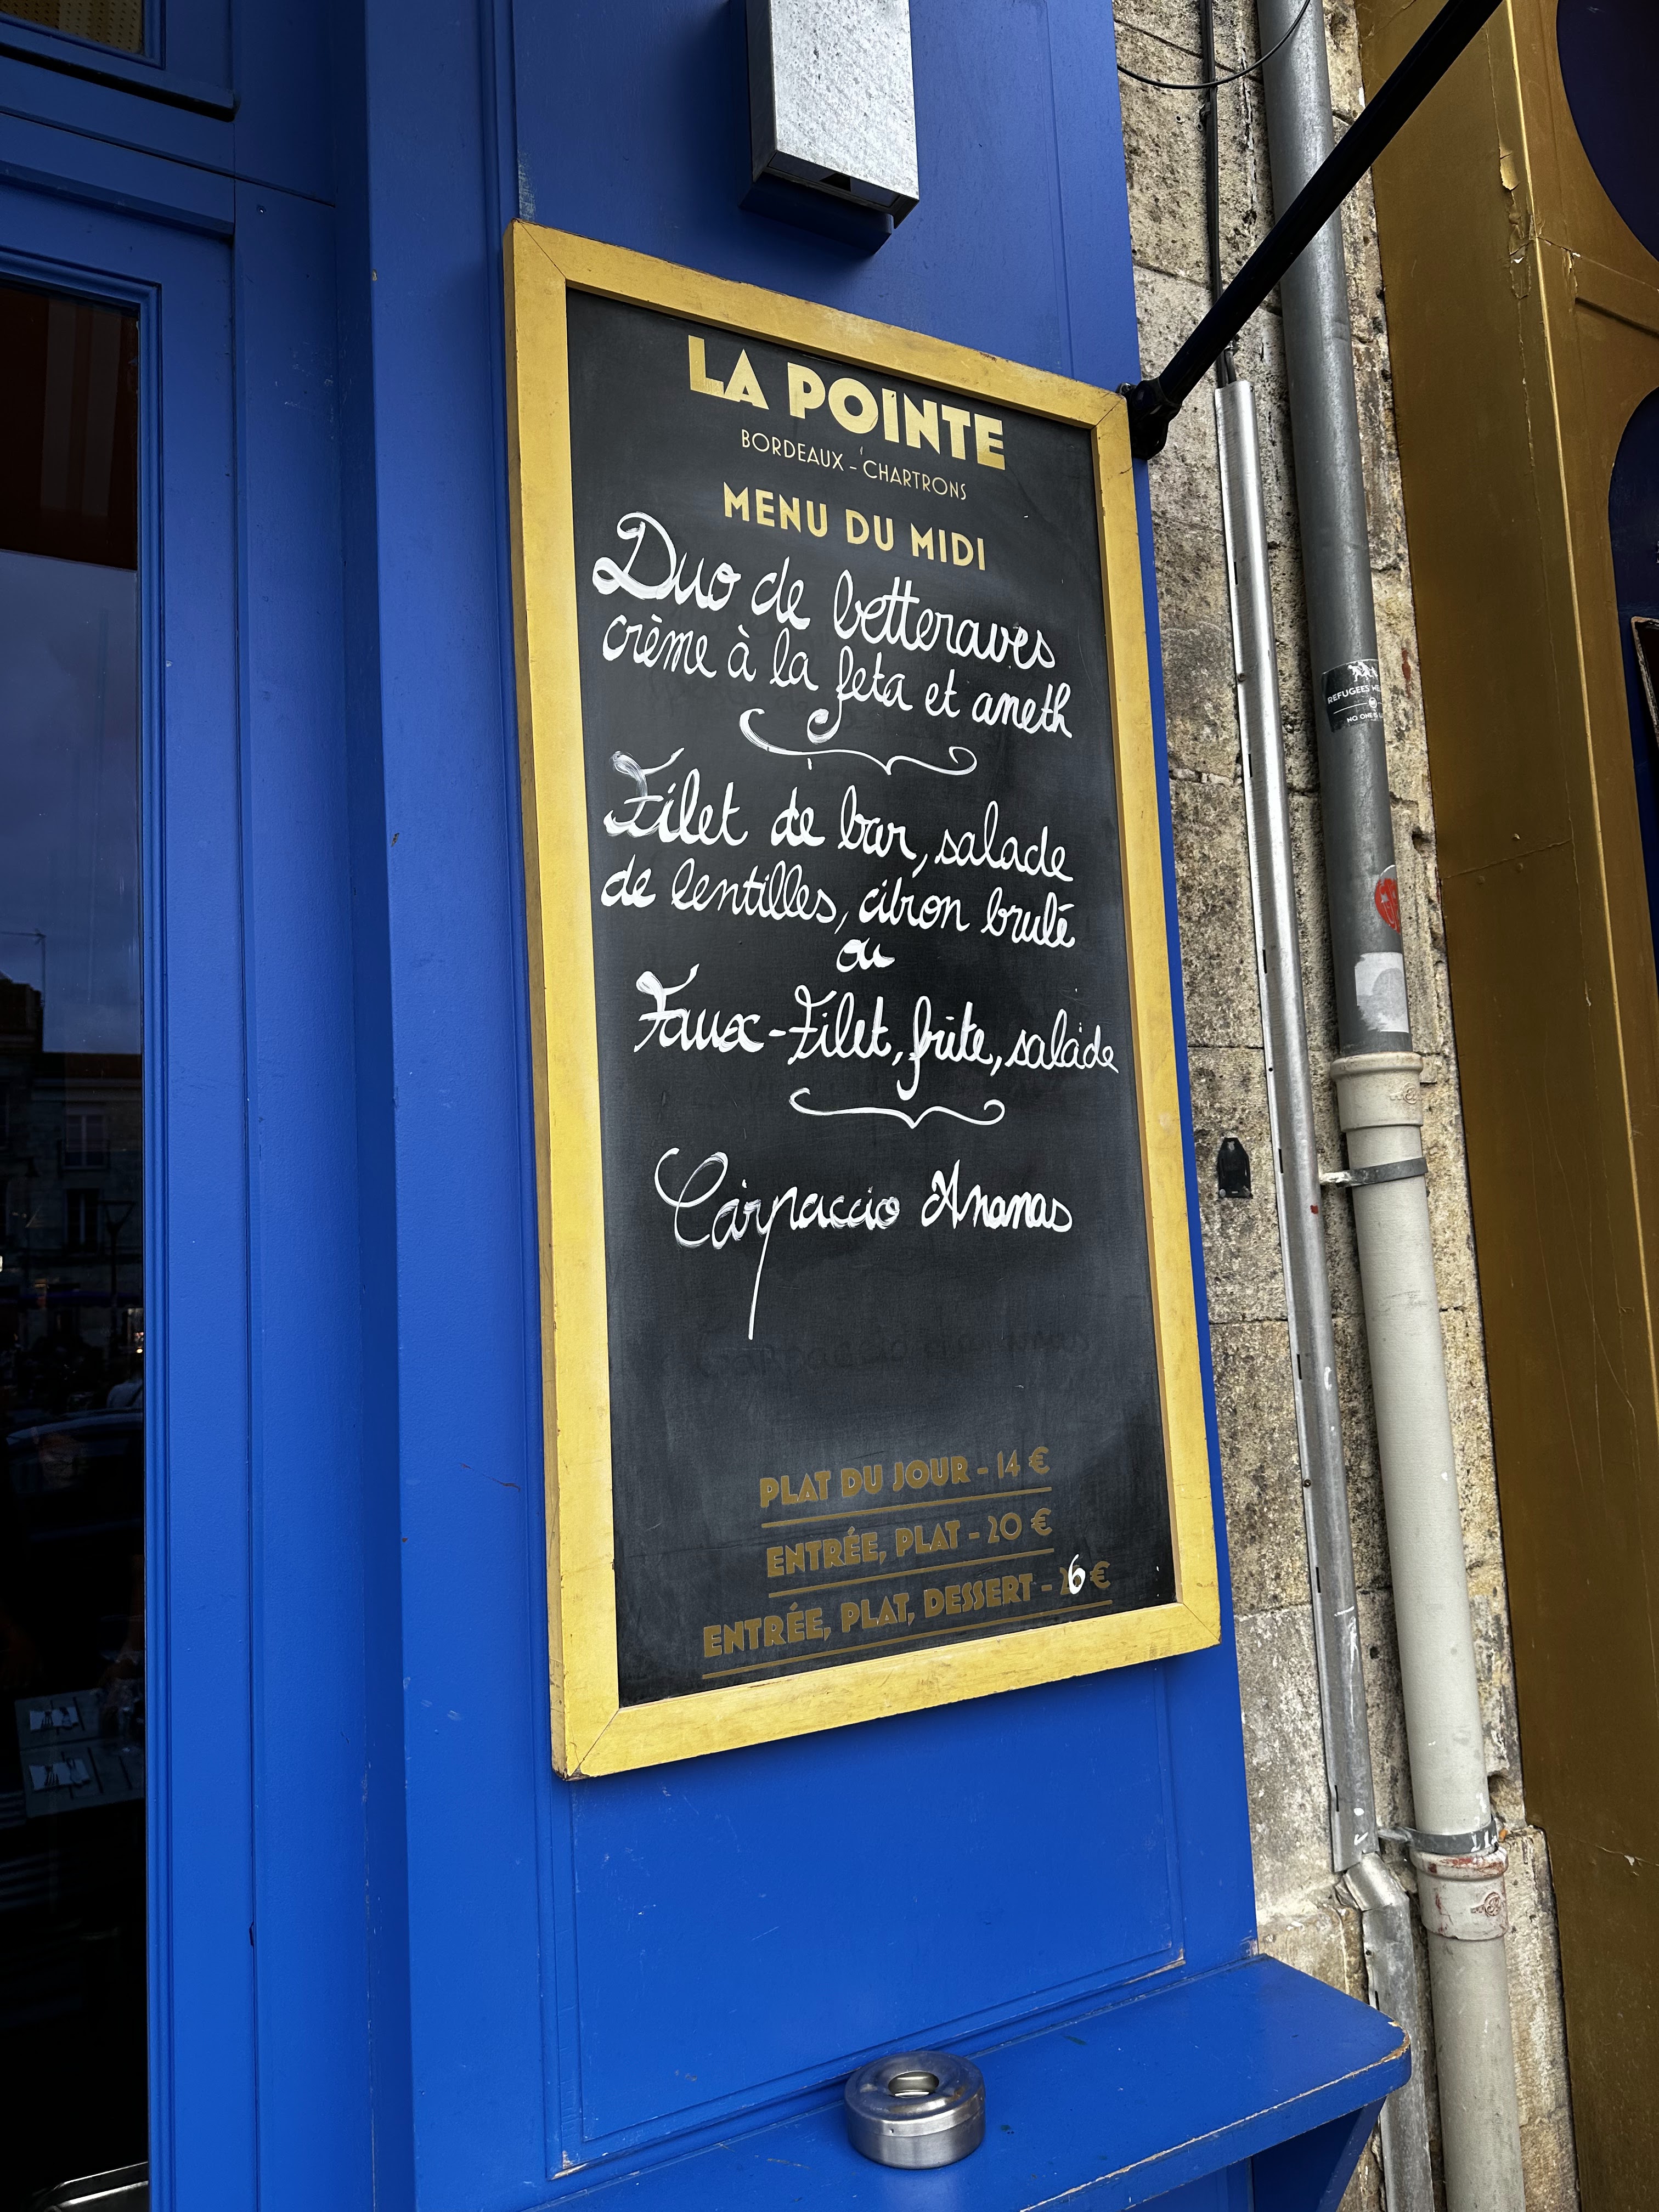 LA POINTE
BORDEAUX - CHARTRONS
MENU DU MIDI
Duo de betteraves
crème à la feta et aneth
Filet de bar, salade
de lentilles, citron brulé
ou
Faux-Filet, frite, salade
Carpaccio Ananas
PLAT DU JOUR - 14 €
ENTRÉE, PLAT - 20 €
ENTRÉE, PLAT, DESSERT - 26 €
REFUGEES
NO ONE